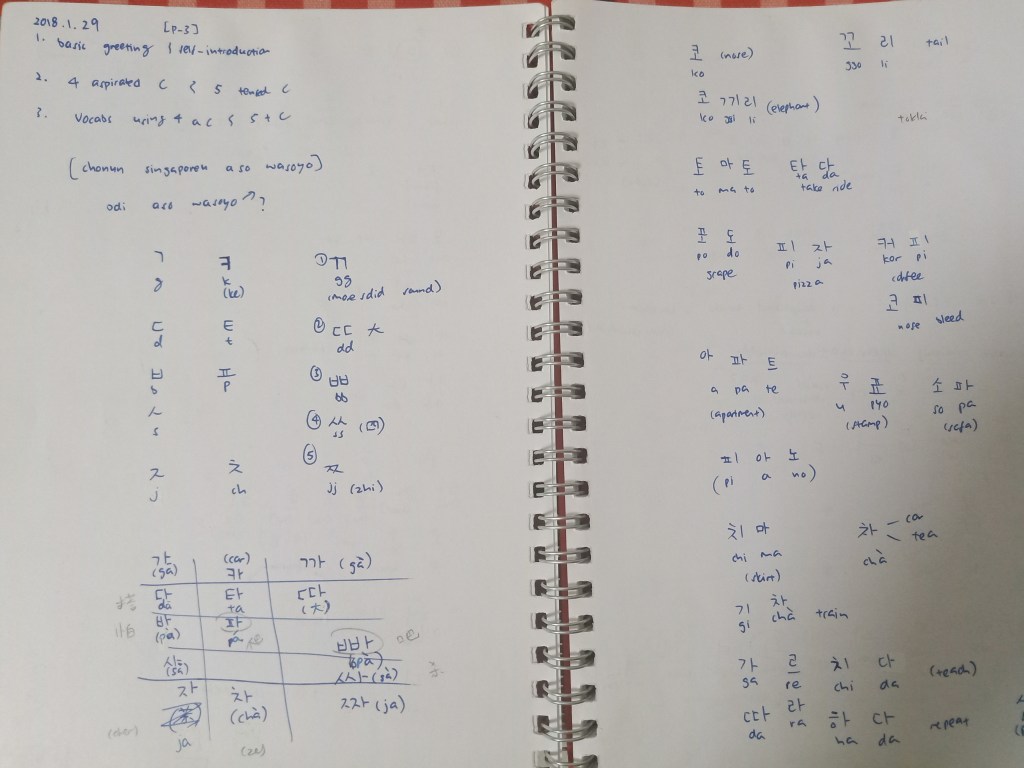 2018.1.29 [P-3]
1. basic greeting & self-introduction
2. 4 aspirated C & 5 tensed C
3. Vocabs using 4 a C & 5 t C
[chonun singaporeu aso wasoyo]
odi aso wasoyo ↗?
ㄱ ㅋ ① ㄲ
g k gg
(ke) (more solid sound)
ㄷ ㅌ ② ㄸ 大
d t dd
ㅂ ㅍ ③ ㅃ
b p bb
ㅅ ④ ㅆ (四)
s ss
⑤
ㅈ ㅊ ㅉ
j ch jj (zhi)
가 (car) 까 (gà)
(ga) 카
다 타 따
da ta (大)
바 파
(pà) pá 빠
사 (bpà)
(sà) 싸 (sà)
자 차 짜 (ja)
(chà)
ja
코 (nose) 꼬 리 tail
ko ggo li
코 끼 리 (elephant)
ko 끼 li
토 마 토 타 다
to ma to ta da
take ride
포 도 피 자 커 피
po do pi ja kor pi
grape pizza coffee
코 피
nose bleed
아 파 트 우 표 소 파
a pa te u pyo so pa
(apartment) (stamp) (sofa)
피 아 노
(pi a no)
치 마 차 car
chi ma chà tea
(skirt)
기 차
gi chà train
가 르 치 다 (teach)
ga re chi da
따 라 하 다 repeat
da ra ha da